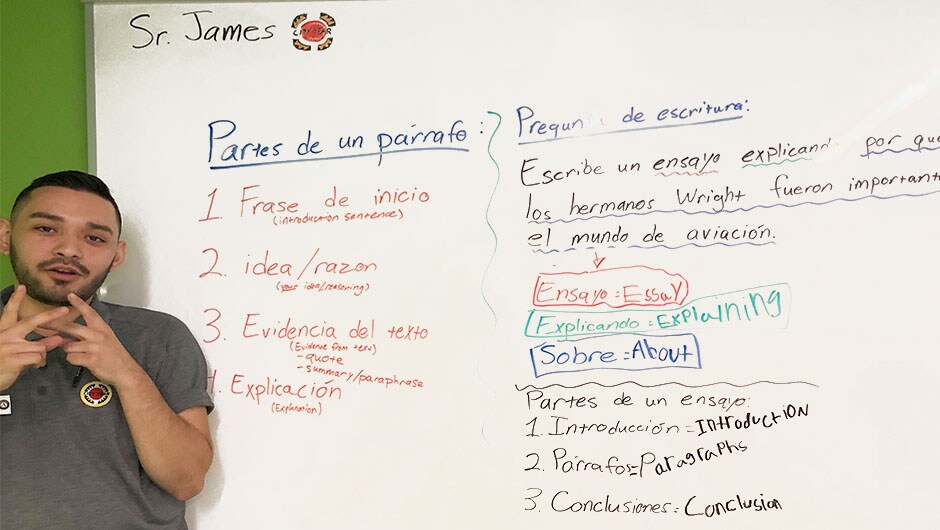 Sr. James
CITY YEAR
Partes de un párrafo:
1. Frase de inicio
(introduction sentence)
2. idea/razon
(your idea/reasoning)
3. Evidencia del texto
(Evidence from text)
- quote
- summary/paraphrase
4. Explicación
(Explanation)
Pregunta de escritura:
Escribe un ensayo explicand por que
los hermanos Wright fueron important
el mundo de aviación.
Ensayo = Essay
Explicando = Explaining
Sobre = About
Partes de un ensayo:
1. Introducción = Introduction
2. Párrafos = Paragraphs
3. Conclusiones = Conclusion